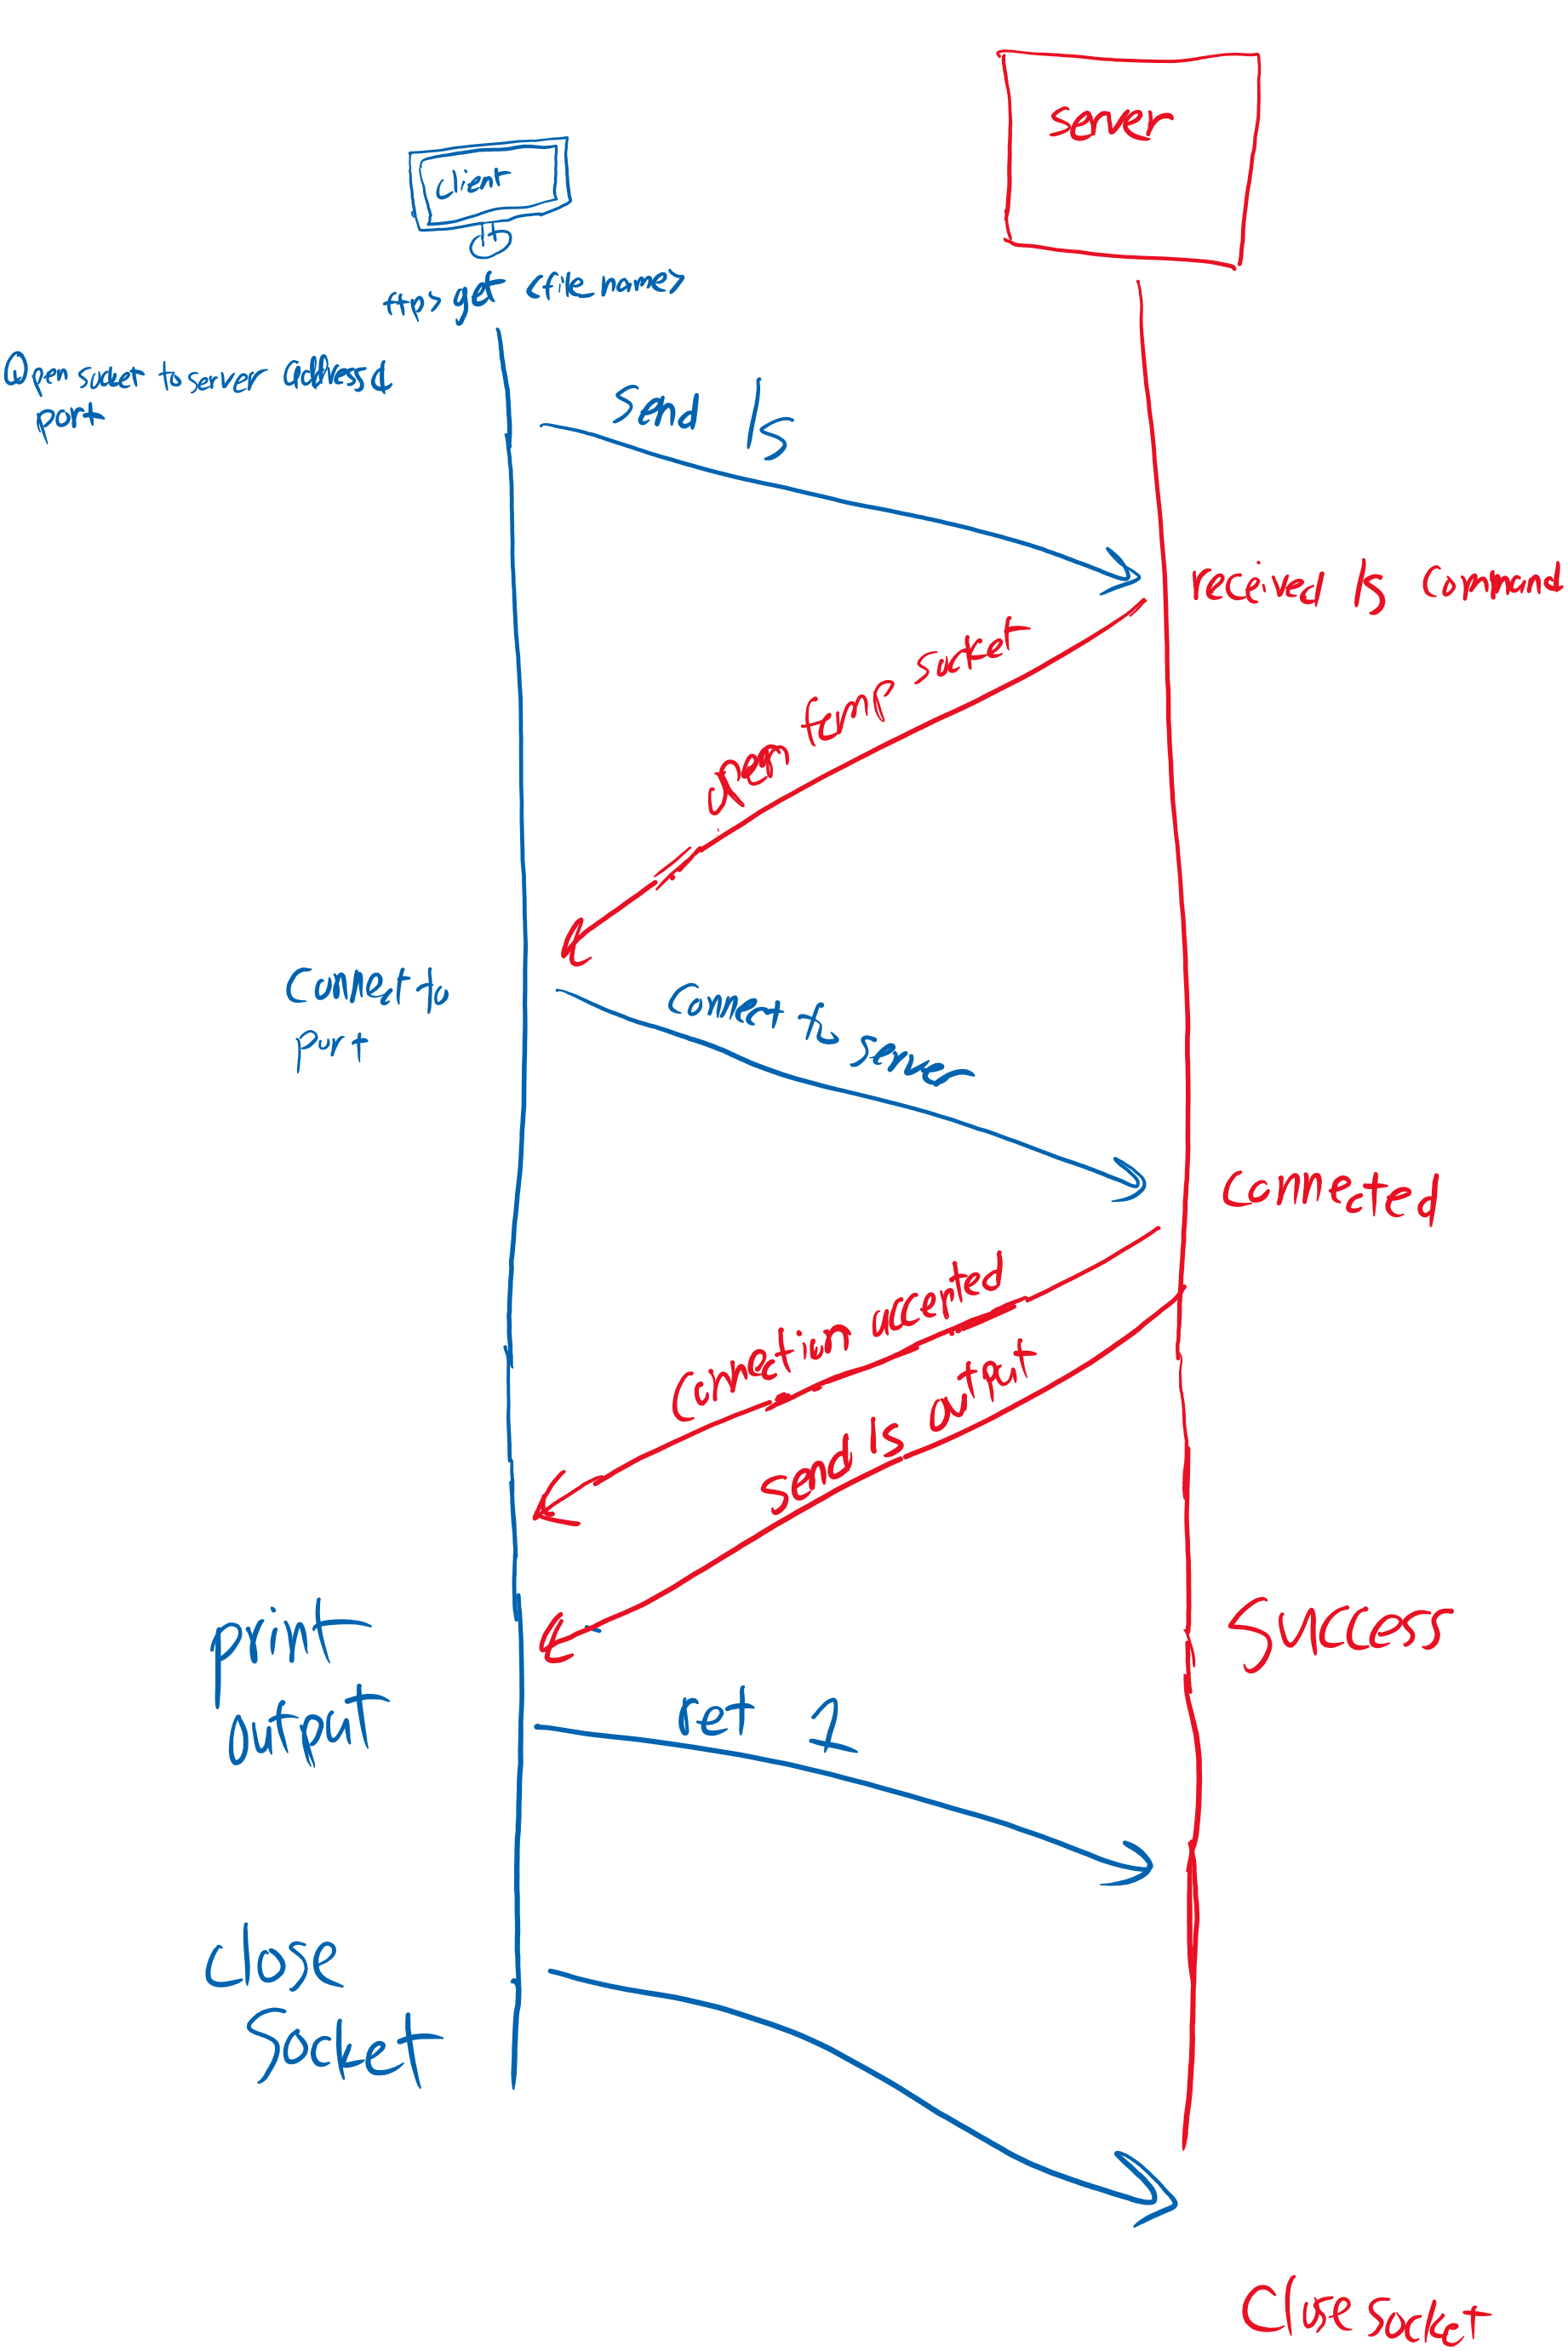 server
client
ftp> get <file name>
Open socket to server address d
port
send ls
received ls command
open temp socket
Connect to
port
Connect to server
Connected
Connection accepted
Send ls output
print
output
Success
ret 1
close
Socket
Close socket